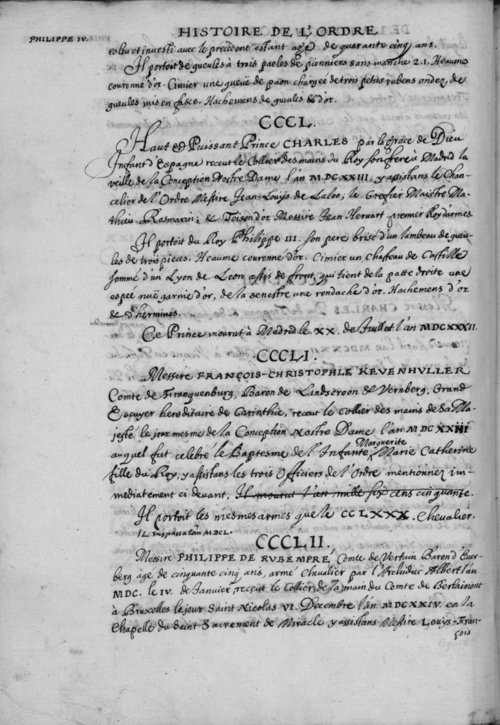 PHILIPPE IV.
HISTOIRE DE L'ORDRE
esleu et investi avec le precedent estant agé de quarante cinq ans.
Il portoit de gueules à trois paeles de pionniers sans manche 2.1. Heaume
couronné d'or. Cimier une queue de paon chargee de trois petits rubens ondez de
gueules mis en face. Hachemens de gueules & d'or.
CCCL.
Haut & Puissant Prince CHARLES par la Grace de Dieu
Infant d'Espagne receut le Collier des mains du Roy son frere à Madrid la
veille de la Conception Nostre Dame l'an MDCXXIII. y assistans le Chan-
celier de l'Ordre Messire Jean-Louys de Laloo, le Greffier Maistre Ma-
thieu Rosmarin; & Toison d'or Messire Jean Hervart premier Roy d'armes.
Il portoit du Roy Philippe III. son pere brisé d'un lambeau de gueu-
les de trois pieces. Heaume couronné d'or. Cimier un chasteau de Castille
sommé d'un Lyon de Leon assis de front, qui tient de la patte droite une
espee nuë garnie d'or, de la senestre une rondache d'or. Hachemens d'or
& d'hermines.
Ce Prince mourut à Madrid le XX. de Juillet l'an MDCXXXII.
CCCLI.
Messire FRANÇOIS-CHRISTOPHLE KEVENHVLLER
Comte de Franquenburg, Baron de Landscroon & Vernberg, Grand
Escuyer hereditaire de Carinthie, receut le Collier des mains de Sa Ma-
jesté le jour mesme de la Conception Nostre Dame l'an MDCXXIII
auquel fut celebré le Baptesme de l'Infante Marguerite Marie Catherine
fille du Roy, y assistans les trois Officiers de l'Ordre mentionnez im-
mediatement ci devant, Il mourut l'an mille six cens cinquante.
Il portoit les mesmes armes que le CCLXXX. Chevalier.
CCCLII.
Messire PHILIPPE DE RVBEMPRE, Comte de Vertain Baron d'Ever-
berg agé de cinquante cinq ans, armé Chevalier par l'Archiduc Albert l'an
MDC. le IV. de Janvier receut le Collier de la main du Comte de Berlaimont
à Bruxelles le jour Saint Nicolas VI. Decembre l'an MDCXXIV. en la
Chapelle du Saint Sacrement de Miracle y assistans Messire Louys-Fran-
çois